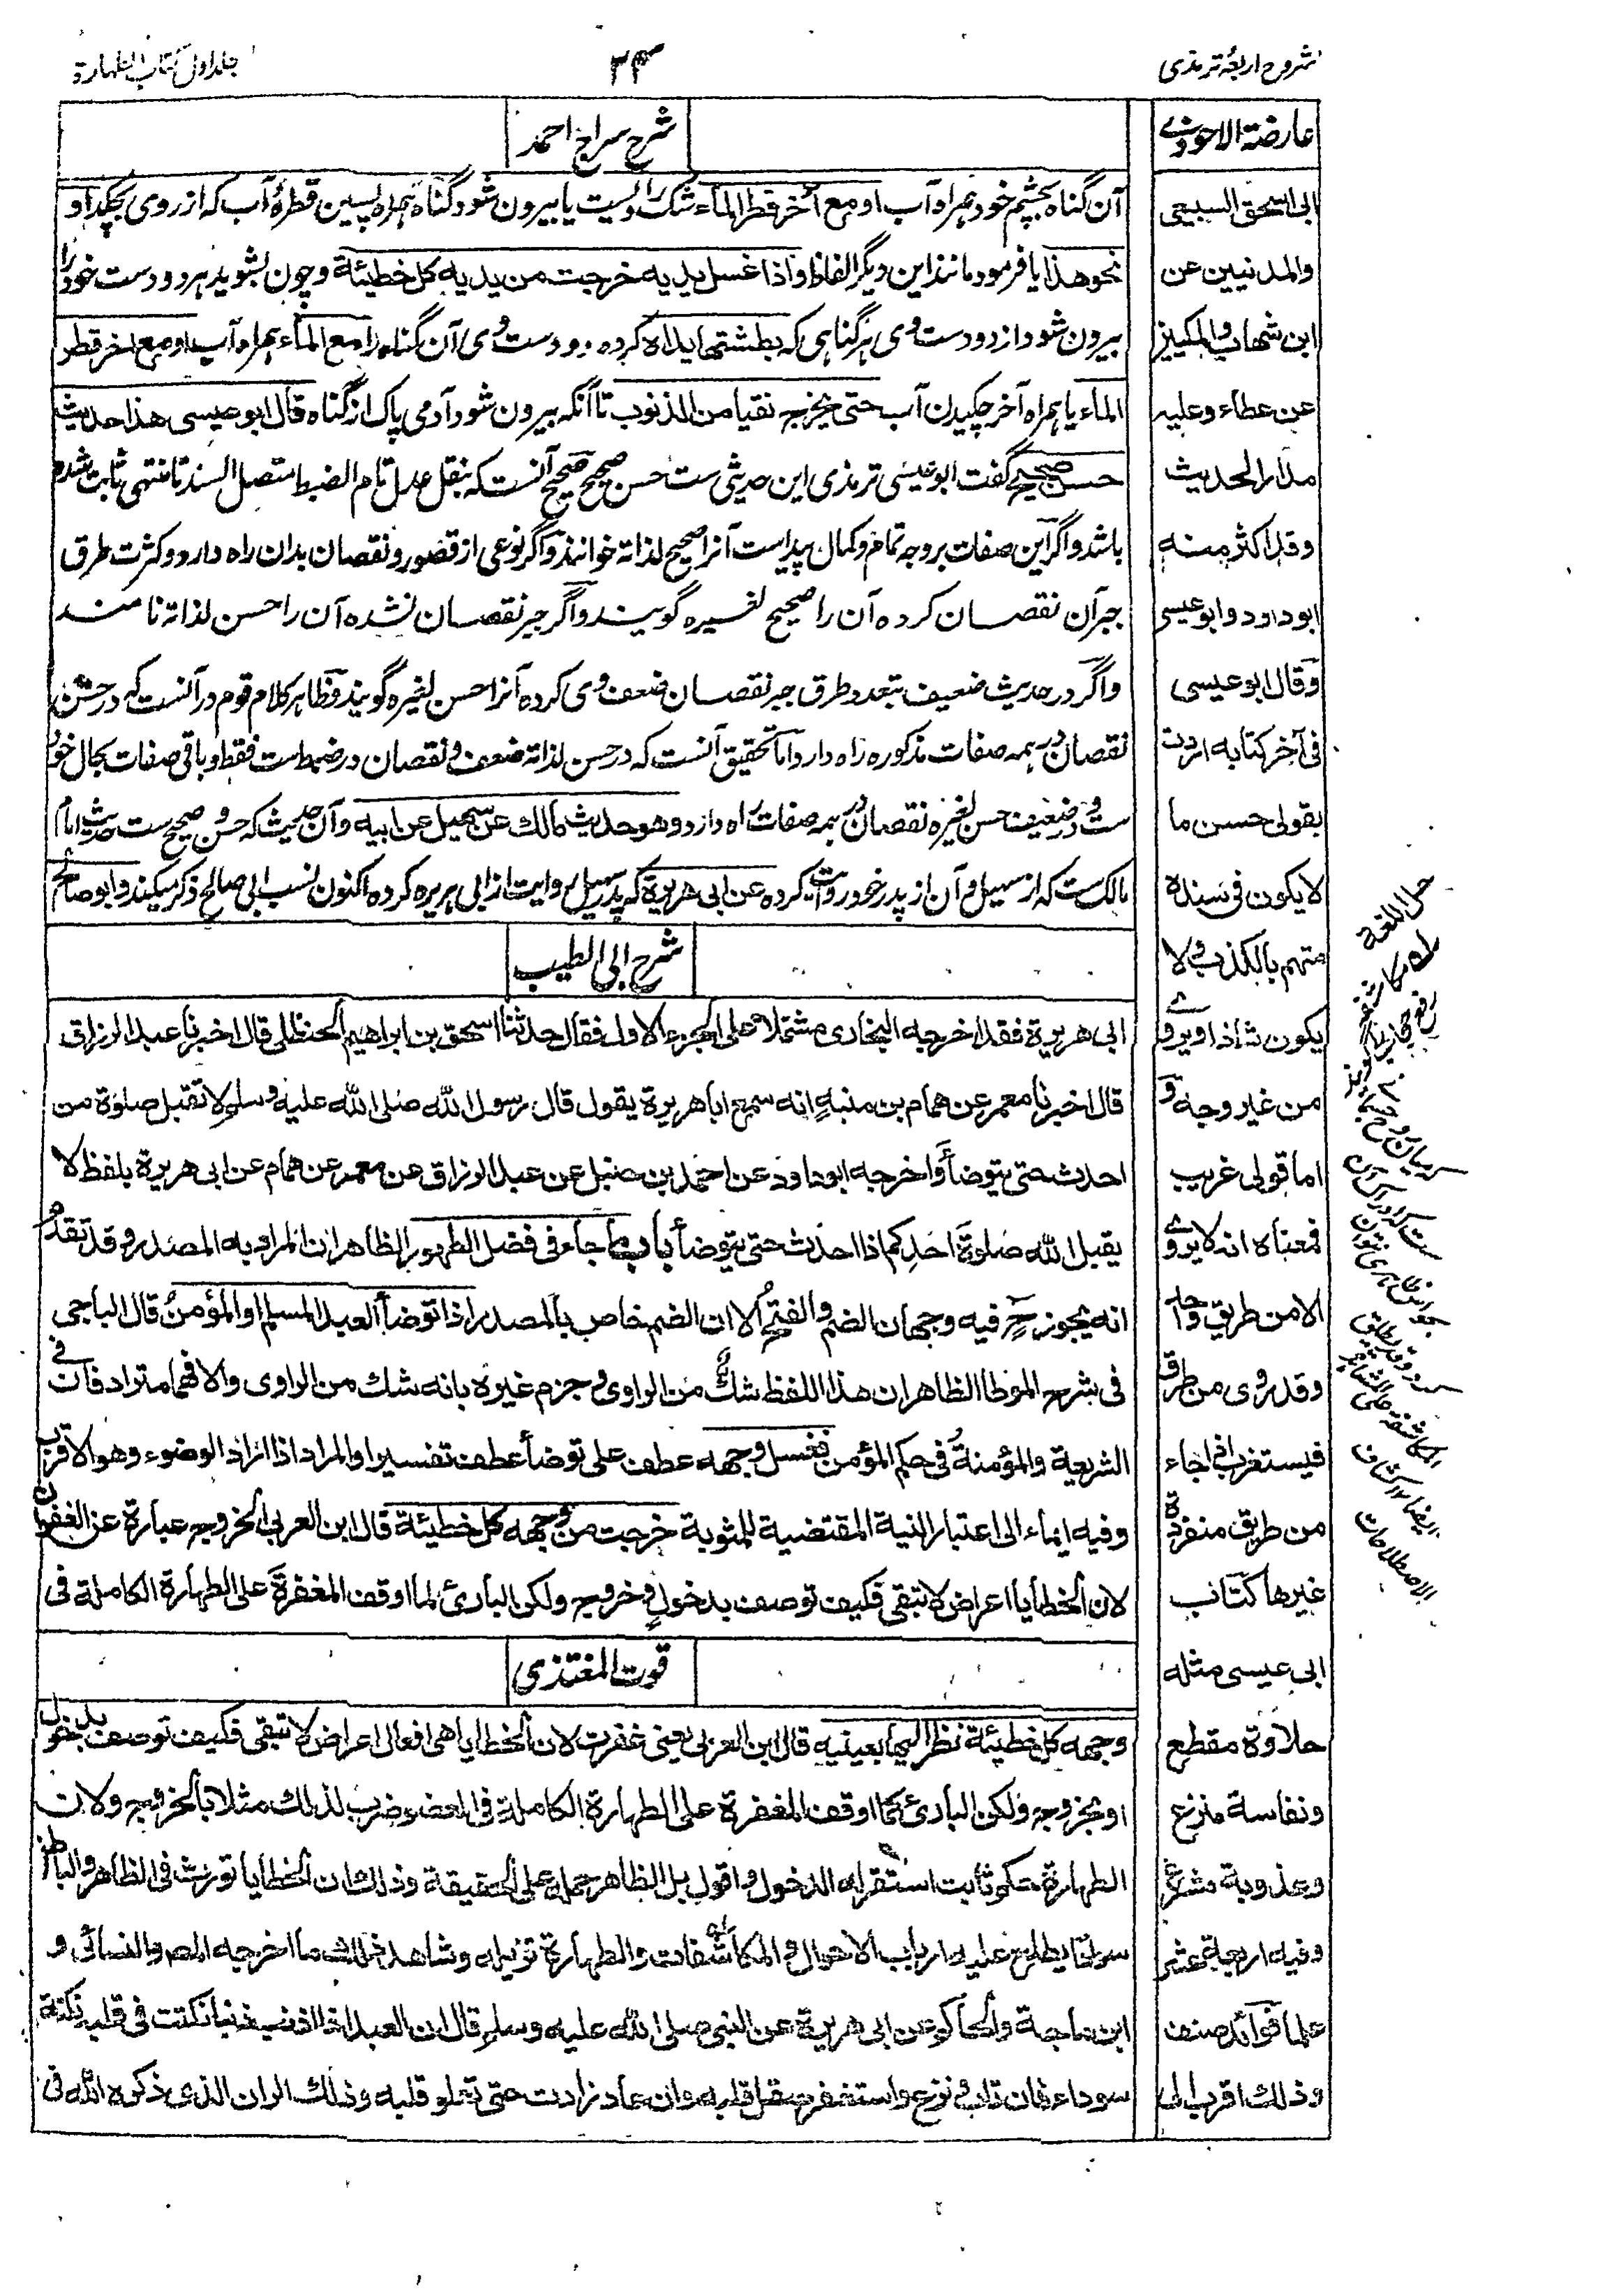 شروح اربعۂ ترمذی
۳۴
جلد اول کتاب الطهارة
عارضة الاحوذے
ابی اسحق السبیعی
والمدنیین عن
ابن شهاب والمکیین
عن عطاء وعلیہ
مدار الحدیث
وقد اکثر منہ
ابو داود وابو عیسی
وقال ابو عیسی
فی آخر کتابہ اردت
بقولی حسن ما
لا یکون فی سندہ
متهم بالکذب ولا
یکون شاذا ویروے
من غیر وجہ و
اما قولی غریب
فمعناہ انہ لا یروے
الا من طریق واحد
وقد روی من طرق
فیستغرب اذا جاء
من طریق منفردة
غیرها کتاب
ابی عیسی مثلہ
حلاوة مقطع
ونفاسة منزع
وعذوبة مشرع
وفیہ اربعة عشر
علما فوائد صنف
وذلك اقرب الی
شرح سراج احمد
آن گناہ بچشم خود ہمراہ آب او مع آخر قطر الماء شک راویست یا بیرون شود گناہ ہمراہ پسین قطرۂ آب کہ از روی بچکد او
نحو هذا یا فرمود مانند این دیگر الفاظ واذا غسل یدیہ خرجت من یدیہ کل خطیئة وچون بشوید ہر دو دست خود را
بیرون شود از دو دست وی ہر گناہی کہ بطشتها یداہ کردہ دو دست وی آن گناہ را مع الماء ہمراہ آب او مع آخر قطر
الماء یا ہمراہ آخر چکیدن آب حتی یخرج نقیا من الذنوب تا آنکہ بیرون شود آدمی پاک از گناہ قال ابو عیسی هذا حدیث
حسن صحیح گفت ابو عیسی ترمذی این حدیثی ست حسن صحیح صحیح آنست کہ بنقل عدل تام الضبط متصل السند تا منتهی ثابت شدہ
باشد واگر این صفات بر وجہ تمام وکمال پیداست آنرا صحیح لذاتہ خوانند واگر نوعی از قصور ونقصان بدان راہ دارد وکثرت طرق
جبر آن نقصان کردہ آن را صحیح لغیرہ گویند واگر جبر نقصان نشدہ آن را حسن لذاتہ نامند
واگر در حدیث ضعیف بتعدد طرق جبر نقصان ضعف وی کردہ آنرا حسن لغیرہ گویند وظاہر کلام قوم در آنست کہ در حسن
نقصان در ہمہ صفات مذکورہ راہ دارد واما تحقیق آنست کہ در حسن لذاتہ ضعف ونقصان در ضبط است فقط وباقی صفات بحال خود
ست ودر ضعیف حسن لغیرہ نقصان در ہمہ صفات راہ دارد وهو حدیث مالك عن سهیل عن ابیہ وآن حدیث کہ حسن و صحیح ست حدیث امام
مالک ست کہ از سہیل وآن از پدر خود روایت کردہ عن ابی هریرة کہ پدر سہیل روایت از ابی ہریرہ کردہ اکنون نسب ابی صالح ذکر میکند وابو صالح
شرح ابی الطیب
ابی هریرة فقد اخرجہ البخاری مشتملا علی الجزء الاول فقال حدثنا اسحق بن ابراهیم الحنظلی قال اخبرنا عبد الرزاق
قال اخبرنا معمر عن همام بن منبہ انہ سمع ابا هریرة یقول قال رسول الله صلی الله علیہ وسلم لا تقبل صلوة من
احدث حتی یتوضأ واخرجہ ابو داود عن احمد بن حنبل عن عبد الرزاق عن معمر عن همام عن ابی هریرة بلفظ لا
یقبل الله صلوة احدکم اذا احدث حتی یتوضأ باب ما جاء فی فضل الطهور الظاهر ان المراد بہ المصدر وقد تقدم
انہ یجوز ح فیہ وجهان الضم والفتح الا ان الضم خاص بالمصدر اذا توضأ العبد المسلم او المؤمن قال الباجی
فی شرح الموطا الظاهر ان هذا اللفظ شك من الراوی وجزم غیرہ بانہ شك من الراوی والا فهما مترادفان فے
الشریعة والمؤمنة فی حکم المؤمن فغسل وجهہ عطف علی توضأ عطف تفسیر او المراد اذا اراد الوضوء وهو الاقرب
وفیہ ایماء الی اعتبار النیة المقتضیة للمثوبة خرجت من وجهہ کل خطیئة قال ابن العربی الخروج عبارة عن الغفران
لان الخطایا اعراض لا تبقی فکیف توصف بدخول وخروج ولکن الباری لما اوقف المغفرة علی الطهارة الکاملة فی
قوت المغتذی
وجهہ کل خطیئة نظر الیها بعینیہ قال ابن العربی یعنی غفرت لان الخطایا هی افعال اعراض لا تبقی فکیف توصف بدخول
او بخروج ولکن الباری لما اوقف المغفرة علی الطهارة الکاملة فی العضو ضرب لذلك مثلا بالخروج ولان
الطهارة حکم ثابت استقر لہ الدخول واقول بل الظاهر حملہ علی الحقیقة وذلك ان الخطایا تورث فی الظاهر والباطن
سوادا یطلع علیہ ارباب الاحوال والمکاشفات والطهارة تزیلہ وشاهد ذلك ما اخرجہ المص والنسائی و
ابن ماجة والحاکم عن ابی هریرة عن النبی صلی الله علیہ وسلم قال ان العبد اذا اذنب ذنبا نکتت فی قلبہ نکتة
سوداء فان تاب ونزع واستغفر صقل قلبہ وان عاد زادت حتی تعلو قلبہ وذلك الران الذی ذکرہ الله فی
حل اللغة